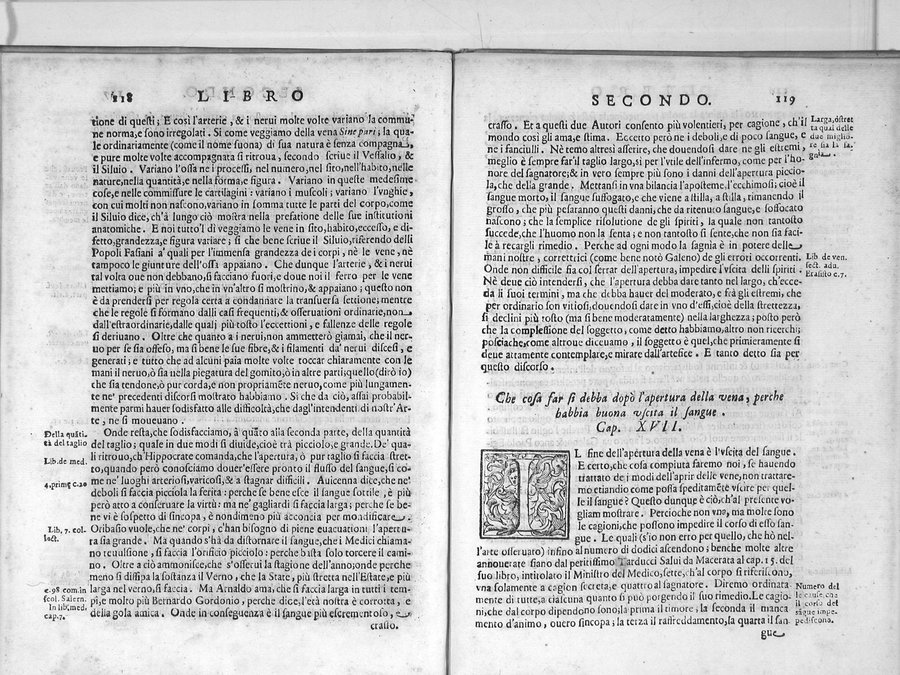 118 LIBRO
tione di questi; E così l'arterie, & i nerui molte volte variano la commu-
ne norma, e sono irregolati. Sì come veggiamo della vena Sine pari; la qua-
le ordinariamente (come il nome suona) di sua natura è senza compagna,
e pure molte volte accompagnata si ritroua, secondo scriue il Vessalio, &
il Siluio. Variano l'ossa ne i processi, nel numero, nel sito, nell'habito, nelle
nature, nella quantità, e nella forma, e figura. Variano in queste medesime
cose, e nelle commissure le cartilagini: variano i muscoli; variano l'vnghie,
con cui molti non nascono, variano in somma tutte le parti del corpo, come
il Siluio dice, ch'à lungo ciò mostra nella prefatione delle sue institutioni
anatomiche. E noi tutto'l dì veggiamo le vene in sito, habito, eccesso, e di-
fetto, grandezza, e figura variare; sì che bene scriue il Siluio, riferendo delli
Popoli Fasiani a' quali per l'immensa grandezza de i corpi, nè le vene, nè
tampoco le giunture dell'ossa appaiano. Che dunque l'arterie, & i nerui
tal volta oue non debbano, si facciano fuori, e doue noi il ferro per le vene
mettiamo; e più in vno, che in vn'altro si mostrino, & appaiano; questo non
è da prendersi per regola certa a condannare la transuersa settione; mentre
che le regole si formano dalli casi frequenti, & osseruationi ordinarie, non
dall'estraordinarie, dalle quali più tosto l'eccettioni, e fallenze delle regole
si deriuano. Oltre che quanto a i nerui, non ammetterò giamai, che il ner-
uo per se sia offeso, ma sì bene le sue fibre, & i filamenti da' nerui discesi, e
generati: e tutto che ad alcuni paia molte volte toccar chiaramente con le
mani il neruo, ò sia nella piegatura del gomito, ò in altre parti; quello (dirò io)
che sia tendone, ò pur corda, e non propriamēte neruo, come più lungamen-
te ne' precedenti discorsi mostrato habbiamo. Sì che da ciò, assai probabil-
mente parmi hauer sodisfatto alle difficoltà, che dagl'intendenti di nostr'Ar-
te, ne si moueuano.
Della quāti-
tà del taglio
Onde resta, che sodisfacciamo, à quāto alla seconda parte, della quantità
del taglio; quale in due modi si diuide, cioè trà picciolo, e grande. De' qua-
li ritrouo, ch'Hippocrate comanda, che l'apertura, ò pur taglio si faccia stret-
Lib. de med.
to, quando però conosciamo douer'essere pronto il flusso del sangue, sì co-
me ne' luoghi arteriosi, varicosi, & a stagnar difficili. Auicenna dice, che ne'
4. primę c. 20
deboli si faccia picciola la ferita: perche se bene esce il sangue sottile, è più
però atto a conseruare la virtù: ma ne' gagliardi si faccia larga; perche se be-
ne vi è sospetto di sincopa, è nondimeno più acconcia per mondificare.
Lib. 7. col.
lect.
Oribasio vuole, che ne' corpi, c'han bisogno di piene euacuationi l'apertu-
ra sia grande. Ma quando s'hà da distornare il sangue, che i Medici chiama-
no reuulsione, si faccia l'orificio picciolo: perche basta solo torcere il cami-
no. Oltre a ciò ammonisce, che s'osserui la stagione dell'anno; onde perche
meno si dissipa la sostanza il Verno, che la State, più stretta nell'Estate, e più
larga nel verno, si faccia. Ma Arnaldo ama, che si faccia larga in tutti i tem-
e. 98. com. in
scol. Salern.
pi, e molto più Bernardo Gordonio, perche dice, l'età nostra è corrotta, e
In lib. med.
cap. 7.
della gola amica. Onde in conseguenza è il sangue più escrementoso, e
crasso.
SECONDO. 119
crasso. Et a questi due Autori consento più volentieri, per cagione, ch'il
mondo così gli ama, e stima. Eccetto però ne i deboli, e di poco sangue, e
ne i fanciulli. Nè temo altresì asserire, che douendosi dare ne gli estremi,
meglio è sempre far'il taglio largo, sì per l'vtile dell'infermo, come per l'ho-
nore del sagnatore; & in vero sempre più sono i danni dell'apertura piccio-
la, che della grande. Mettansi in vna bilancia l'aposteme, l'ecchimosi; cioè il
sangue morto, il sangue suffogato, e che viene a stilla, a stilla, rimanendo il
grosso; che più pesaranno questi danni, che da ritenuto sangue, e soffocato
nascono; che la semplice risolutione de gli spiriti, la quale non tantosto
succede, che l'huomo non la senta; e non tantosto si sente, che non sia faci-
le à recargli rimedio. Perche ad ogni modo la sagnia è in potere delle
mani nostre, correttrici (come bene notò Galeno) de gli errori occorrenti.
Onde non difficile sia col serrar dell'apertura, impedire l'vscita delli spiriti.
Nè deue ciò intendersi, che l'apertura debba dare tanto nel largo, ch'ecce-
da li suoi termini, ma che debba hauer del moderato, e frà gli estremi, che
per ordinario son vitiosi, douendosi dare in vno d'essi, cioè della strettezza,
si declini più tosto (ma sì bene moderatamente) nella larghezza; posto però
che la complessione del soggetto, come detto habbiamo, altro non ricerchi;
posciache, come altroue diceuamo, il soggetto è quel, che primieramente si
deue attamente contemplare, e mirare dall'artefice. E tanto detto sia per
questo discorso.
Larga, ò stret
ta qual delle
due miglio-
re sia la sa-
gnia.
Lib. de ven.
sect. adu.
Erasist. c. 7.
Che cosa far si debba dopò l'apertura della vena, perche
habbia buona vscita il sangue.
Cap. XVII.
IL fine dell'apertura della vena è l'vscita del sangue.
E certo, che cosa compiuta faremo noi, se hauendo
trattato de i modi dell'aprir delle vene, non trattare-
mo etiandio come possa speditamēte vscire per quel-
le il sangue? Questo dunque è ciò, ch'al presente vo-
gliam mostrare. Percioche non vna, ma molte sono
le cagioni, che possono impedire il corso di esso san-
gue. Le quali (s'io non erro per quello, che hò nel-
l'arte osseruato) infino al numero di dodici ascendono; benche molte altre
annouerate siano dal peritissimo Tarducci Salui da Macerata al cap. 15. del
suo libro, intitolato il Ministro del Medico, sete, ch'al corpo si riferiscono,
vna solamente a cagion secreta, e quattro al sagnatore. Diremo ordinata
mente di tutte, a ciascuna quanto si può porgendo il suo rimedio. Le cagio-
ni, che dal corpo dipendono sono; la prima il timore, la seconda il manca
mento d'animo, ouero sincopa; la terza il raffreddamento, la quarta il san-
gue
Numero del
le cause, che
il corso del
sāgue impe-
pediscono.